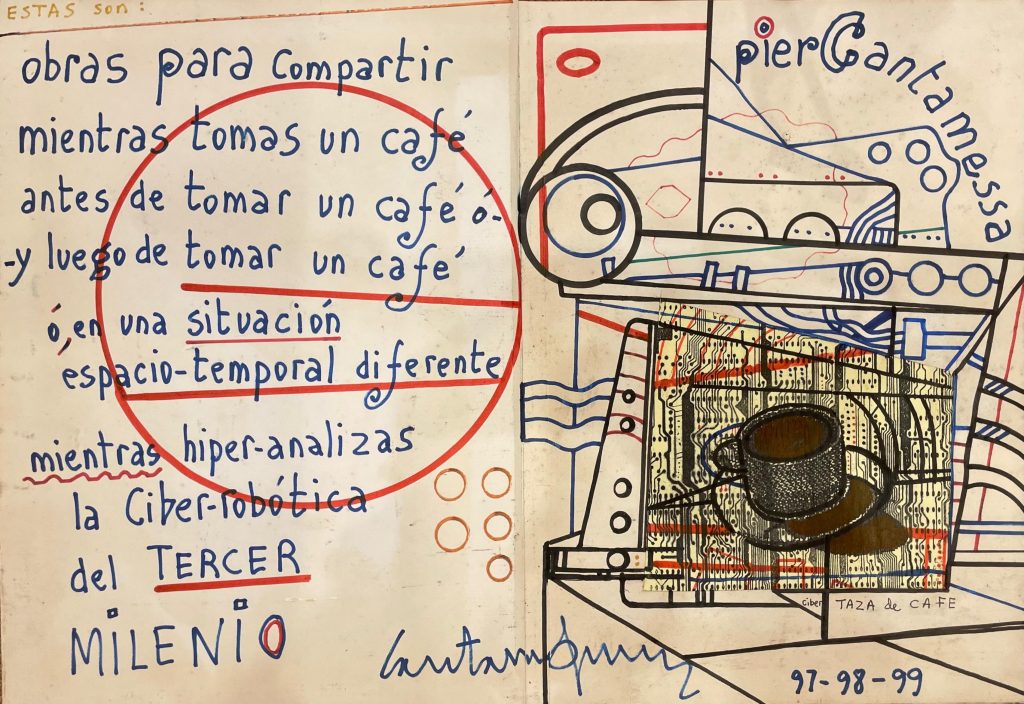 ESTAS son:
obras para compartir
mientras tomas un café
antes de tomar un café ó-
-y luego de tomar un café
ó, en una situación
espacio-temporal diferente
mientras hiper-analizas
la Ciber-robótica
del TERCER
MiLENiO
pierCantamessa
Ciber TAZA de CAFE
97-98-99